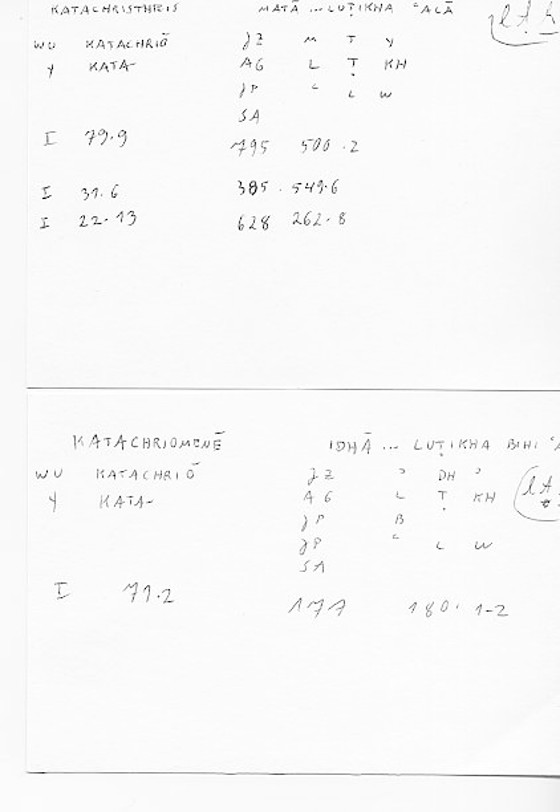 KATACHRISTHEIS MATĀ ... LUṬIKHA ʿALĀ
WU KATACHRIŌ JZ M T Y
Y KATA- AG L Ṭ KH
JP ʿ L W
SA
I 79.9 795 500.2
I 31.6 385. 549.6
I 22.13 628 262.8
KATACHRIOMENĒ IDHĀ ... LUṬIKHA BIHI ʿA
WU KATACHRIŌ JZ ʾ DH ʾ
Y KATA- AG L Ṭ KH
JP B
JP ʿ L W
SA
I 71.2 177 180. 1-2